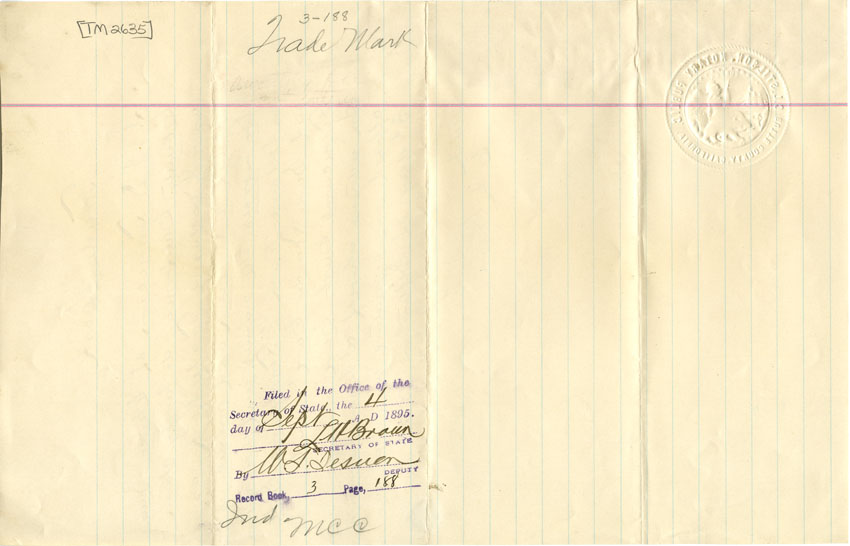 [TM 2635]
3-188
Trade Mark
Filed in the Office of the
Secretary of State, the 4
day of Sept A. D 1895.
L H Brown
SECRETARY OF STATE
By W. T.
DEPUTY
Record Book, 3 Page, 188
Ind MCC